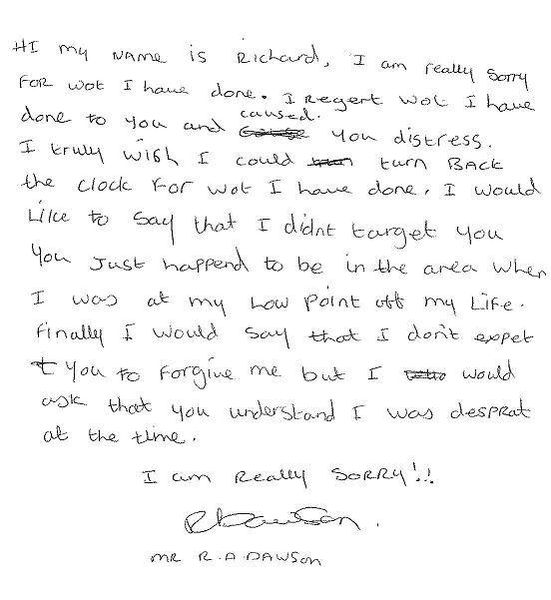 HI my NAME is Richard, I am really sorry
FOR wot I have done. I regert wot I have
done to you and caused. you distress.
I truly wish I could turn BACK
the clock For wot I have done. I would
Like to say that I didnt target you
You Just happend to be in the area when
I was at my Low Point off my LiFe.
Finally I would say that I don't expet
you to Forgive me but I would
ask that you understand I was desprat
at the time.
I am Really SORRY!!
RDawson.
MR R.A DAWSON